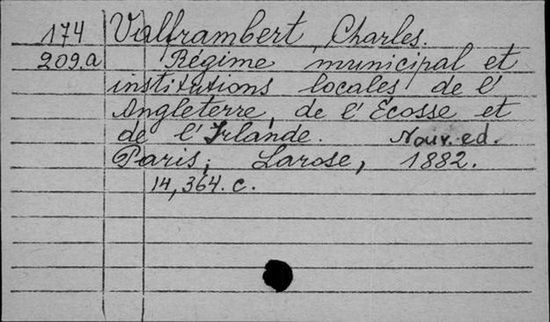 174 Valframbert, Charles.
209.a Régime municipal et
institutions locales de l'
Angleterre, de l'Ecosse et
de l'Irlande. Nouv. ed.
Paris, Larose, 1882.
14,364. c.